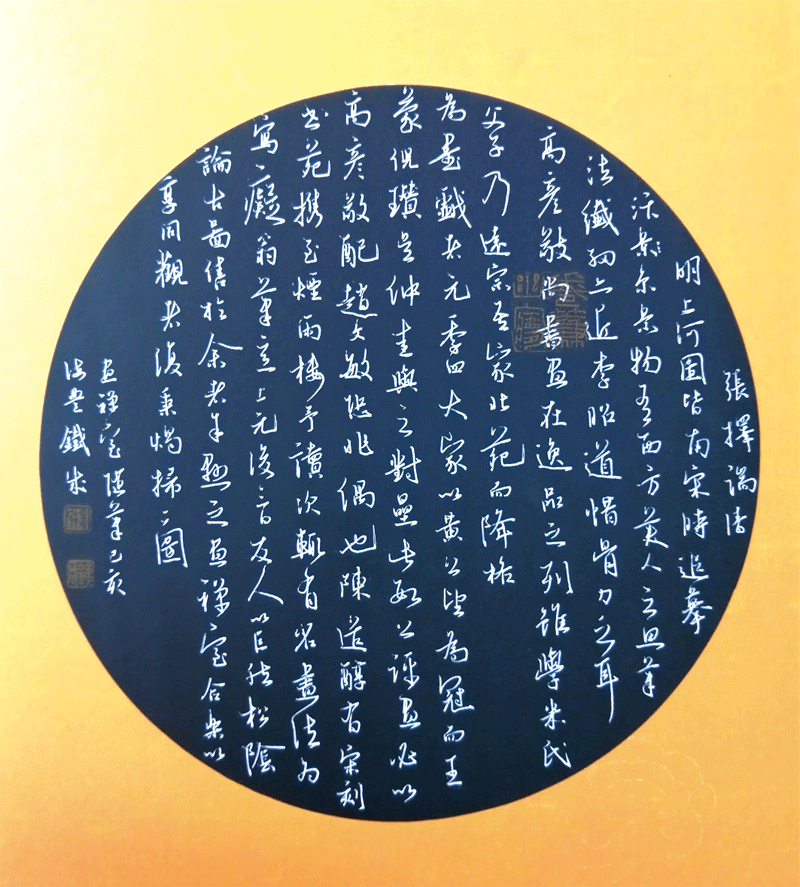 張擇端清
明上河圖皆南宋時追摹
汴京景物有西方美人之思筆
法纖細亦近李昭道惜骨力乏耳
高彥敬尚書畫在逸品之列雖學米氏
父子乃遠宗吾家北苑而降格
為墨戲者元季四大家以黃公望為冠而王
蒙倪瓚吳仲圭與之對壘此數公評畫必以
高彥敬配趙文敏恐非偶也陳道醇有宋刻
書苑攜至煙雨樓予讀次輒有名畫法為
寫癡翁筆意上元後三日友人以巨然松陰
論古圖售於余者余懸之畫禪室合樂以
享同觀者復秉燭掃二圖
畫禪室隨筆己亥
鐵成